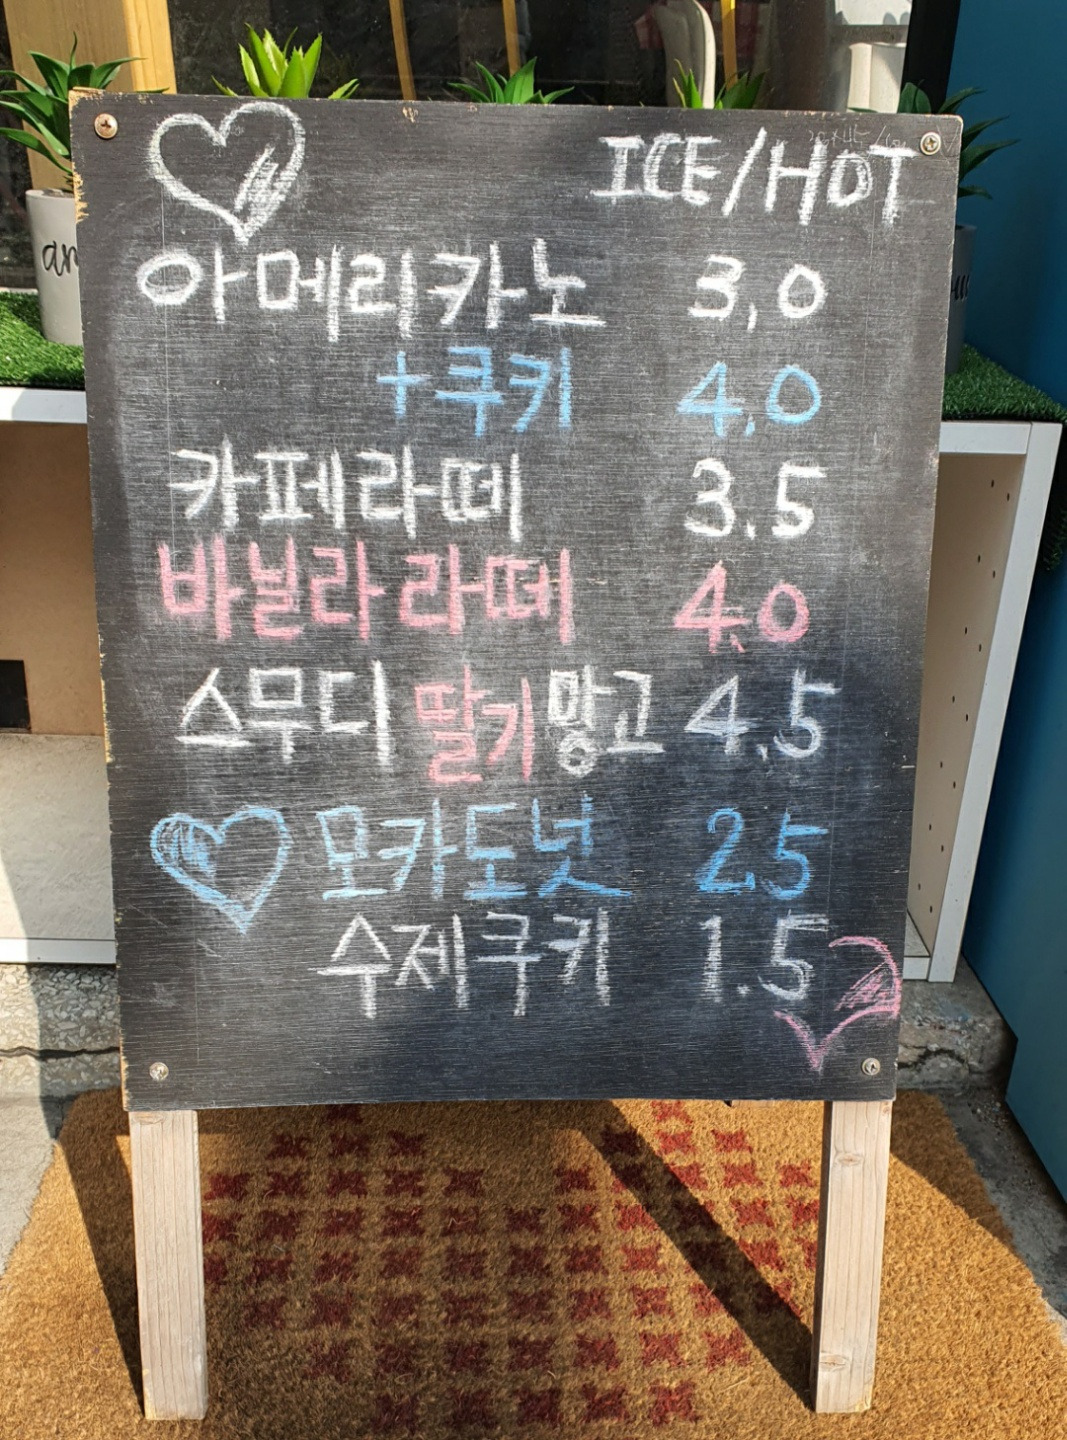 ICE/HOT
아메리카노 3,0
+쿠키 4,0
카페라떼 3.5
바닐라 라떼 4.0
스무디 딸기 망고 4.5
모카도넛 2.5
수제쿠키 1.5